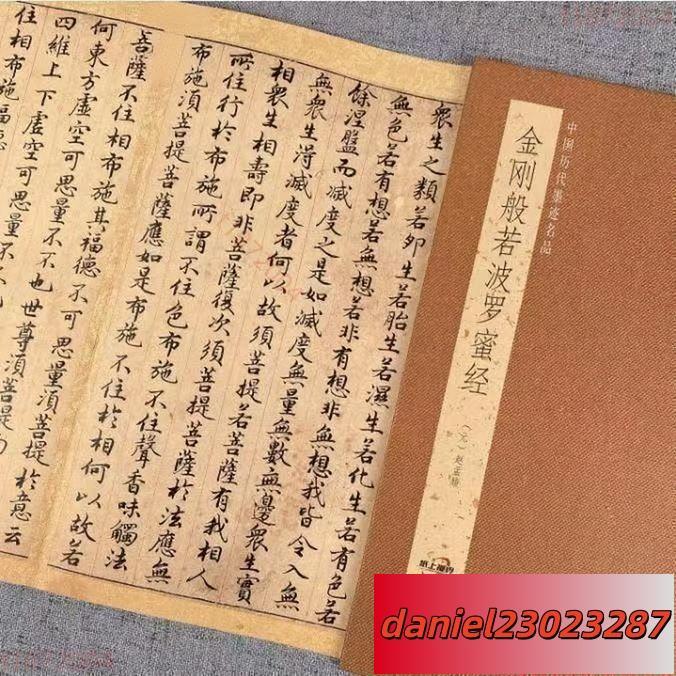 中国历代墨迹名品
金刚般若波罗蜜经
（元）赵孟頫
衆生之類若卵生若胎生若濕生若化生若有色若
無色若有想若無想若非有想非無想我皆令入無
餘涅盤而滅度之是如滅度無量無數無邊衆生實
無衆生淂滅度者何以故須菩提若菩薩有我相人
相衆生相壽即非菩薩復次須菩提菩薩於法應無
所住行於布施所謂不住色布施不住聲香味觸法
布施須菩提菩薩應如是布施不住於相何以故若
菩薩不住相布施其福德不可思量須菩提於意云
何東方虛空可思量不不也世尊須菩提南
四維上下虛空可思量不
住相布施福德
daniel23023287